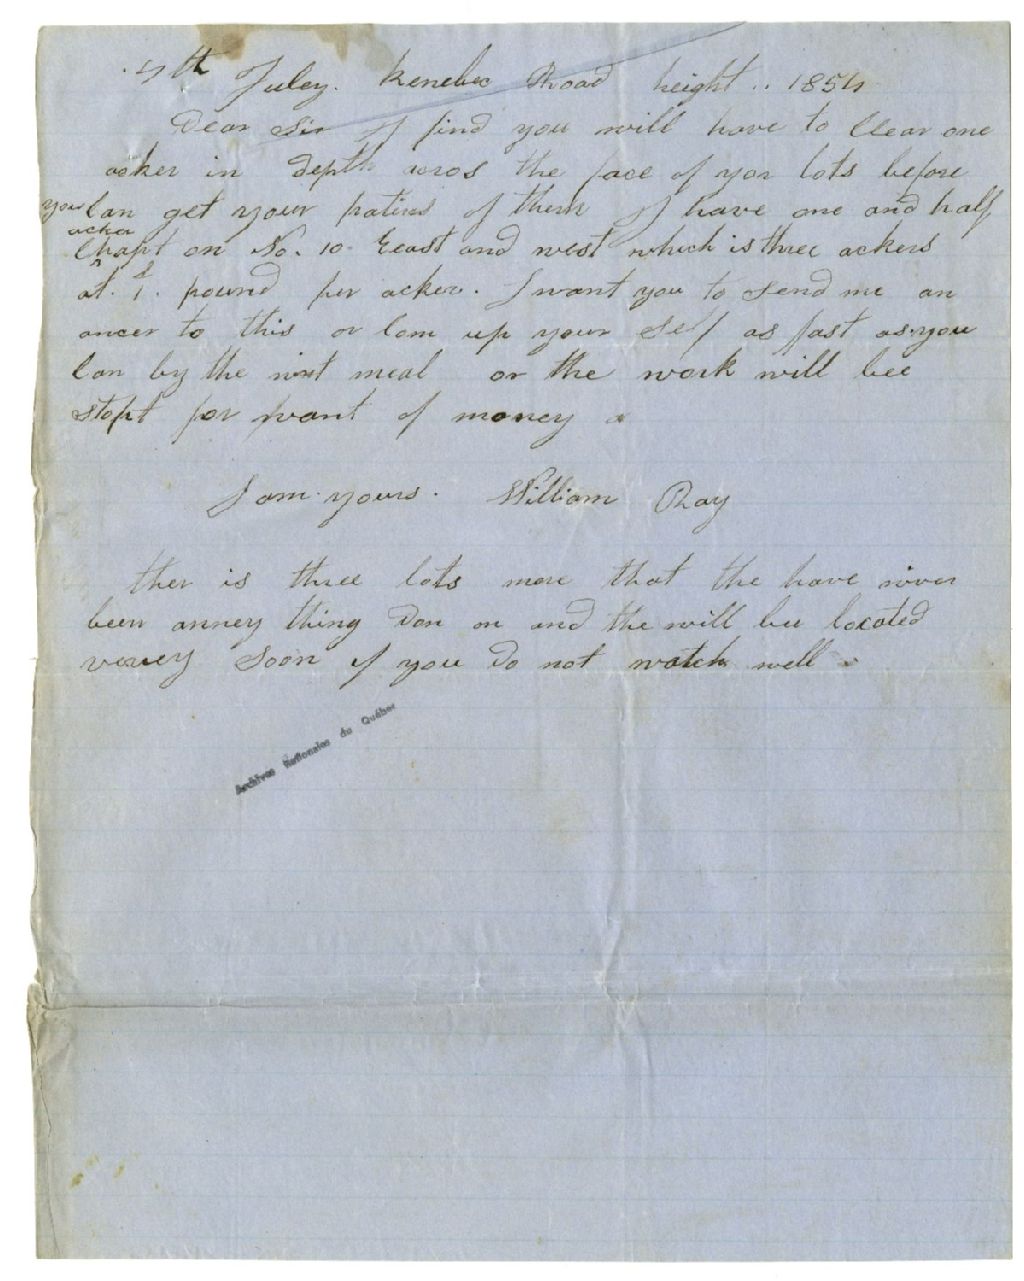 4th July. Kenebec Road height .. 1854
Dear Sir I find you will have to Clear one
acker in depth acros the face of yor lots before
you Can get your patins of them I have one and half
acker
Chapt on No. 10 Eeast and west which is three ackers
at 1. pound per acker. I want you to send me an
ancer to this or Com up your self as fast as you
Can by the next meal or the work will bee
stopt for want of money
I am yours. William Ray
ther is three lots more that the have niver
been anney thing Don on and the will bee located
verrey Soon if you do not watch well
Archives Nationales du Québec